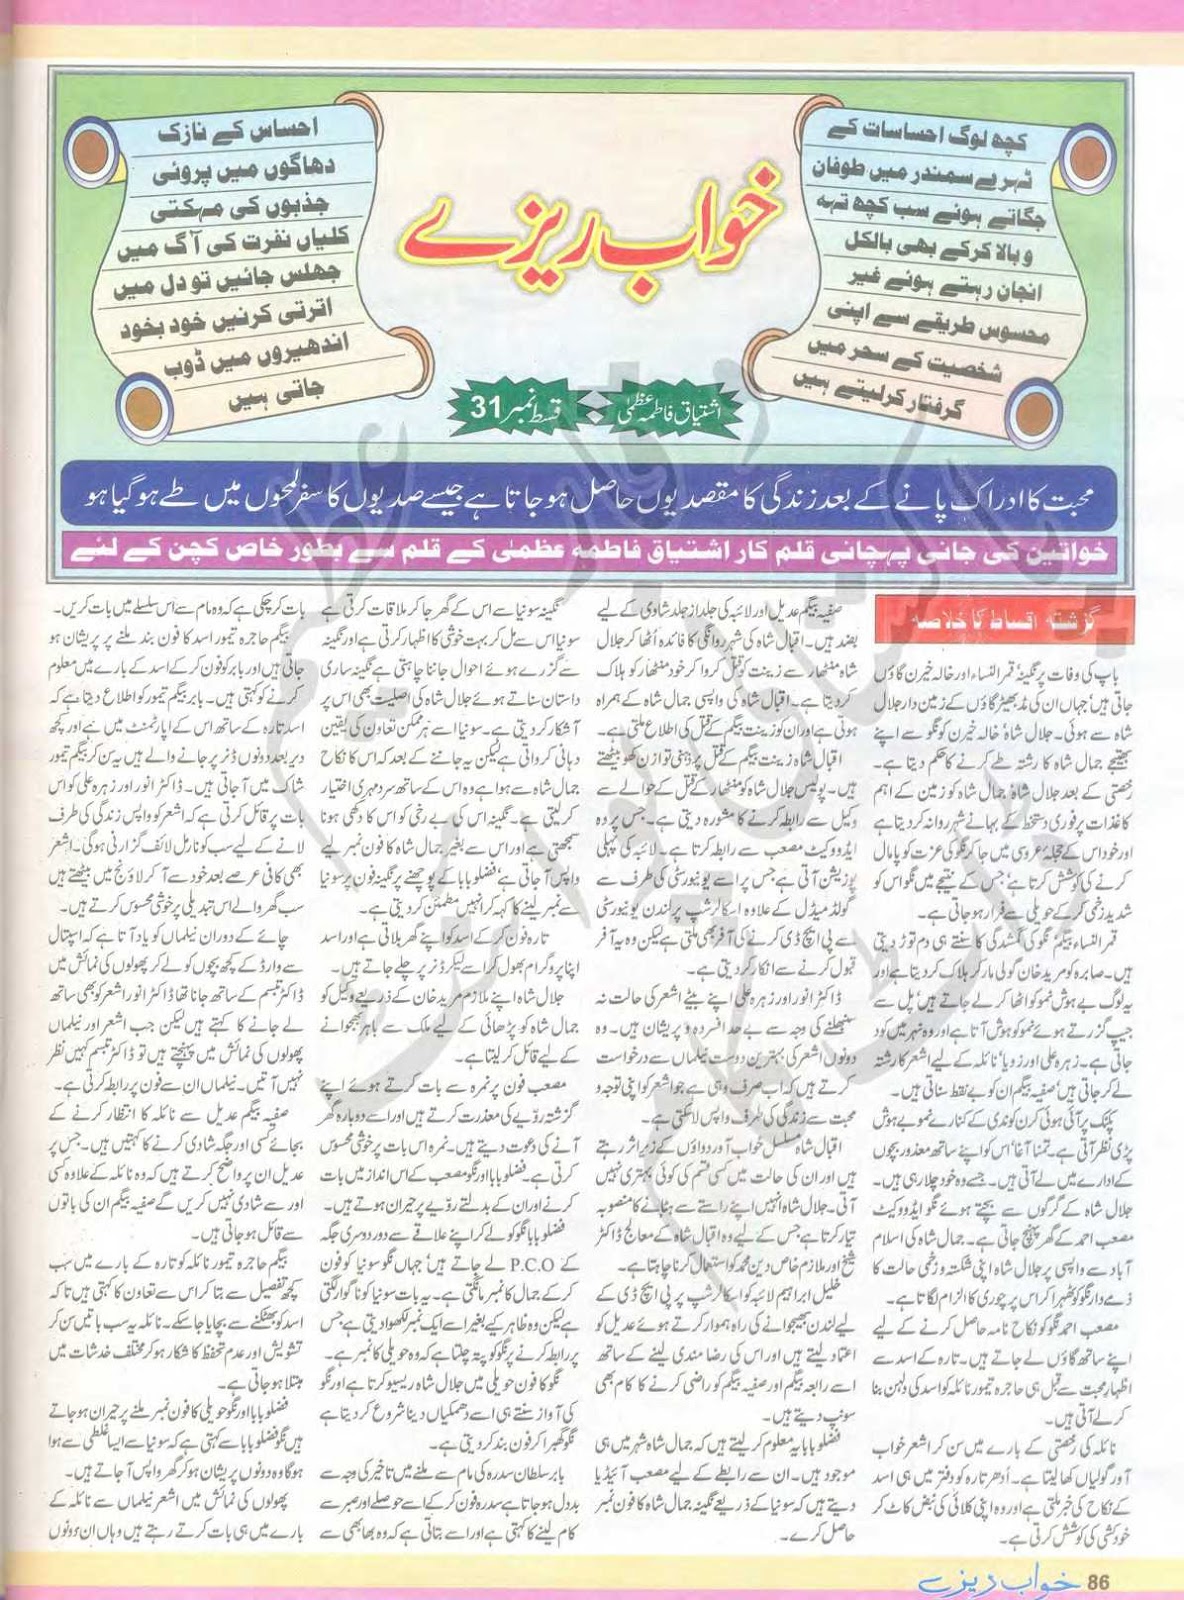 کچھ لوگ احساسات کے
ٹہرے سمندر میں طوفان
جگاتے ہوئے سب کچھ تہہ
و بالا کرکے بھی بالکل
انجان رہتے ہوئے غیر
محسوس طریقے سے اپنی
شخصیت کے سحر میں
گرفتار کرلیتے ہیں
خواب ریزے
احساس کے نازک
دھاگوں میں پروئی
جذبوں کی مہکتی
کلیاں نفرت کی آگ میں
جھلس جائیں تو دل میں
اترتی کرنیں خود بخود
اندھیروں میں ڈوب
جاتی ہیں
اشتیاق فاطمہ عظمیٰ
قسط نمبر 31
محبت کا ادراک پانے کے بعد زندگی کا مقصد یوں حاصل ہو جاتا ہے جیسے صدیوں کا سفر لمحوں میں طے ہو گیا ہو
خواتین کی جانی پہچانی قلم کار اشتیاق فاطمہ عظمیٰ کے قلم سے بطور خاص کچن کے لئے
گزشتہ اقساط کا خلاصہ
باپ کی وفات پر نگینہ، قمر النساء اور خالہ خیرن گاؤں
جاتی ہیں، جہاں ان کی مڈبھیڑ گاؤں کے زمین دار جلال
شاہ سے ہوئی۔ جلال شاہ، خالہ خیرن کو نگو سے اپنے
بھتیجے جمال شاہ کا رشتہ طے کرنے کا حکم دیتا ہے۔
رخصتی کے بعد جلال شاہ، جمال شاہ کو زمین کے اہم
کاغذات پر فوری دستخط کے بہانے شہر روانہ کر دیتا ہے
اور خود اس کے حجلۂ عروسی میں جا کر نگو کی عزت کو پامال
کرنے کی کوشش کرتا ہے، جس کے نتیجے میں نگو اس کو
شدید زخمی کر کے حویلی سے فرار ہو جاتی ہے۔
قمر النساء بیگم، نگو کی گمشدگی کا سنتے ہی دم توڑ دیتی
ہیں۔ صابرہ کو مرید خان گولی مار کر ہلاک کر دیتا ہے اور
یہ لوگ بے ہوش نمو کو اٹھا کر لے جاتے ہیں، پل سے
جیپ گزرتے ہوئے نمو کو ہوش آتا ہے اور وہ نہر میں کود
جاتی ہے۔ زہرہ علی اور زویا، نائلہ کے لیے اشعر کا رشتہ
لے کر جاتی ہیں، صفیہ بیگم ان کو بے نقط سناتی ہیں۔
پکنک پر آئی ہوئی کرن کو ندی کے کنارے نمو بے ہوش
پڑی نظر آتی ہے۔ تمنا آغا، اس کو اپنے ساتھ معذور بچوں
کے ادارے میں لے آتی ہیں۔ جسے وہ خود چلا رہی ہیں۔
جلال شاہ کے گرگوں سے بچتے ہوئے نگو ایڈووکیٹ
مصعب احمد کے گھر پہنچ جاتی ہے۔ جمال شاہ کی اسلام
آباد سے واپسی پر جلال شاہ اپنی شکستہ و زخمی حالت کا
ذمے دار نگو کو ٹھہرا کر اس پر چوری کا الزام لگاتا ہے۔
مصعب احمد نگو کو نکاح نامہ حاصل کرنے کے لیے
اپنے ساتھ گاؤں لے جاتے ہیں۔ تارہ کے اسد سے
اظہار محبت سے قبل ہی حاجرہ تیمور نائلہ کو اسد کی دلہن بنا
کر لے آتی ہیں۔
نائلہ کی رخصتی کے بارے میں سن کر اشعر خواب
آور گولیاں کھا لیتا ہے۔ اُدھر تارہ کو دفتر میں ہی اسد
کے نکاح کی خبر ملتی ہے اور وہ اپنی کلائی کی نبض کاٹ کر
خود کشی کی کوشش کرتی ہے۔
صفیہ بیگم عدیل اور لائبہ کی جلد از جلد شادی کے لیے
بضد ہیں۔ اقبال شاہ کی شہر روانگی کا فائدہ اُٹھا کر جلال
شاہ مٹھار سے زینت کو قتل کروا کر خود مٹھار کو ہلاک
کر دیتا ہے۔ اقبال شاہ کی واپسی جمال شاہ کے ہمراہ
ہوتی ہے اور ان کو زینت بیگم کے قتل کی اطلاع ملتی ہے۔
اقبال شاہ زینت بیگم کے قتل پر ذہنی توازن کھو بیٹھتے
ہیں۔ پولیس جلال شاہ کو مٹھار کے قتل کے حوالے سے
وکیل سے رابطہ کرنے کا مشورہ دیتی ہے۔ جس پر وہ
ایڈووکیٹ مصعب سے رابطہ کرتا ہے۔ لائبہ کی پہلی
پوزیشن آتی ہے جس پر اسے یونیورسٹی کی طرف سے
گولڈ میڈل کے علاوہ اسکالر شپ پر لندن یونیورسٹی
سے پی ایچ ڈی کرنے کی آفر بھی ملتی ہے لیکن وہ یہ آفر
قبول کرنے سے انکار کر دیتی ہے۔
ڈاکٹر انور اور زہرہ علی اپنے بیٹے اشعر کی حالت نہ
سنبھلنے کی وجہ سے بے حد افسردہ و پریشان ہیں۔ وہ
دونوں اشعر کی بہترین دوست نیلماں سے درخواست
کرتے ہیں کہ اب صرف وہی ہے جو اشعر کو اپنی توجہ و
محبت سے زندگی کی طرف واپس لا سکتی ہے۔
اقبال شاہ مسلسل خواب آور دواؤں کے زیر اثر رہتے
ہیں اور ان کی حالت میں کسی قسم کی کوئی بہتری نہیں
آتی۔ جلال شاہ انہیں اپنے راستے سے ہٹانے کا منصوبہ
تیار کرتا ہے جس کے لیے وہ اقبال شاہ کے معالج ڈاکٹر
شیخ اور ملازم خاص دین محمد کو استعمال کرنا چاہتا ہے۔
خلیل ابراہیم لائبہ کو اسکالر شپ پر پی ایچ ڈی کے
لیے لندن بھیجوانے کی راہ ہموار کرتے ہوئے عدیل کو
اعتماد لیتے ہیں اور اس کی رضا مندی لینے کے ساتھ
اسے رابعہ بیگم اور صفیہ بیگم کو راضی کرنے کا کام بھی
سونپ دیتے ہیں۔
فضلو بابا یہ معلوم کر لیتے ہیں کہ جمال شاہ شہر میں ہی
موجود ہیں۔ ان سے رابطے کے لیے مصعب آئیڈیا
دیتے ہیں کہ سونیا کے ذریعے نگینہ جمال شاہ کا فون نمبر
حاصل کرے۔
نگینہ سونیا سے اس کے گھر جا کر ملاقات کرتی ہے
سونیا اس سے مل کر بہت خوشی کا اظہار کرتی ہے اور نگینہ
سے گزرے ہوئے احوال جاننا چاہتی ہے نگینہ ساری
داستان سناتے ہوئے جلال شاہ کی اصلیت بھی اس پر
آشکار کر دیتی ہے۔ سونیا اسے ہر ممکن تعاون کی یقین
دہانی کرواتی ہے لیکن یہ جاننے کے بعد کہ اس کا نکاح
جمال شاہ سے ہوا ہے وہ اس کے ساتھ سرد مہری اختیار
کر لیتی ہے۔ نگینہ اس کی بے رخی کو اس کا دکھی ہونا
سمجھتی ہے اور اس سے بغیر جمال شاہ کا فون نمبر لیے
واپس آ جاتی ہے، فضلو بابا کے پوچھنے پر نگینہ فون پر سونیا
سے نمبر لینے کا کہہ کر انہیں مطمئن کر دیتی ہے۔
تارہ فون کر کے اسد کو اپنے گھر بلاتی ہے اور اسد
اپنا پروگرام بھول کر اسے لیکر ڈنر پر چلے جاتے ہیں۔
جلال شاہ اپنے ملازم مرید خان کے ذریعے وکیل کو
جمال شاہ کو پڑھائی کے لیے ملک سے باہر بھجوانے
کے لیے قائل کر لیتا ہے۔
مصعب فون پر نمرہ سے بات کرتے ہوئے اپنے
گزشتہ رویے کی معذرت کرتے ہیں اور اسے دوبارہ گھر
آنے کی دعوت دیتے ہیں۔ نمرہ اس بات پر خوشی محسوس
کرتی ہے۔ فضلو بابا اور نگو مصعب کے اس انداز میں بات
کرنے اور ان کے بدلتے رویے پر حیران ہوتے ہیں۔
فضلو بابا نگو کو لے کر اپنے علاقے سے دور دوسری جگہ
کے P.C.O لے جاتے ہیں، جہاں نگو سونیا کو فون
کر کے جمال کا نمبر مانگتی ہے۔ یہ بات سونیا کو ناگوار لگتی
ہے لیکن وہ ظاہر کیے بغیر اسے ایک نمبر لکھوا دیتی ہے جس
پر رابطہ کرنے پر نگو کو پتہ چلتا ہے کہ وہ حویلی کا نمبر ہے۔
نگو کا فون حویلی میں جلال شاہ ریسیو کرتا ہے اور نگو
کی آواز سنتے ہی اسے دھمکیاں دینا شروع کر دیتا ہے
نگو گھبرا کر فون بند کر دیتی ہے۔
بابر سلطان سدرہ کی مام سے ملنے میں تاخیر کی وجہ سے
بددل ہو جاتا ہے سدرہ فون کر کے اسے حوصلے اور صبر سے
کام لینے کا کہتی ہے اور اسے بتاتی ہے کہ وہ بھابھی سے
بات کر چکی ہے کہ وہ مام سے اس سلسلے میں بات کریں۔
بیگم حاجرہ تیمور اسد کا فون بند ملنے پر پریشان ہو
جاتی ہیں اور بابر کو فون کر کے اسد کے بارے میں معلوم
کرنے کو کہتی ہیں۔ بابر بیگم تیمور کو اطلاع دیتا ہے کہ
اسد تارہ کے ساتھ اس کے اپارٹمنٹ میں ہے اور کچھ
دیر بعد دونوں ڈنر پر جانے والے ہیں یہ سن کر بیگم تیمور
شاک میں آ جاتی ہیں۔ ڈاکٹر انور اور زہرہ علی کو اس
بات پر قائل کرتی ہے کہ اشعر کو واپس زندگی کی طرف
لانے کے لیے سب کو نارمل لائف گزارنی ہو گی۔ اشعر
بھی کافی عرصے بعد خود سے آ کر لاؤنج میں بیٹھتے ہیں
سب گھر والے اس تبدیلی پر خوشی محسوس کرتے ہیں۔
چائے کے دوران نیلماں کو یاد آتا ہے کہ اسپتال
سے وارڈ کے کچھ بچوں کو لے کر پھولوں کی نمائش میں
ڈاکٹر تبسم کے ساتھ جانا تھا ڈاکٹر انور اشعر کو بھی ساتھ
لے جانے کا کہتے ہیں لیکن جب اشعر اور نیلماں
پھولوں کی نمائش میں پہنچتے ہیں تو ڈاکٹر تبسم کہیں نظر
نہیں آتیں۔ نیلماں ان سے فون پر رابطہ کرتی ہے۔
صفیہ بیگم عدیل سے نائلہ کا انتظار کرنے کے
بجائے کسی اور جگہ شادی کرنے کا کہتی ہیں۔ جس پر
عدیل ان پر واضح کرتے ہیں کہ وہ نائلہ کے علاوہ کسی
اور سے شادی نہیں کریں گے صفیہ بیگم ان کی باتوں
سے قائل ہو جاتی ہیں۔
بیگم حاجرہ تیمور نائلہ کو تارہ کے بارے میں سب
کچھ تفصیل سے بتا کر اس سے تعاون کا کہتی ہیں تا کہ
اسد کو بھٹکنے سے بچایا جا سکے۔ نائلہ یہ سب باتیں سن کر
تشویش اور عدم تحفظ کا شکار ہو کر مختلف خدشات میں
مبتلا ہو جاتی ہے۔
فضلو بابا اور نگو حویلی کا فون نمبر ملنے پر حیران ہو جاتے
ہیں نگو فضلو بابا سے کہتی ہے کہ سونیا سے ایسا غلطی سے ہوا
ہو گا وہ دونوں پریشان ہو کر گھر واپس آ جاتے ہیں۔
پھولوں کی نمائش میں اشعر نیلماں سے نائلہ کے
بارے میں ہی بات کرتے رہتے ہیں وہاں ان دونوں
86 خواب ریزے